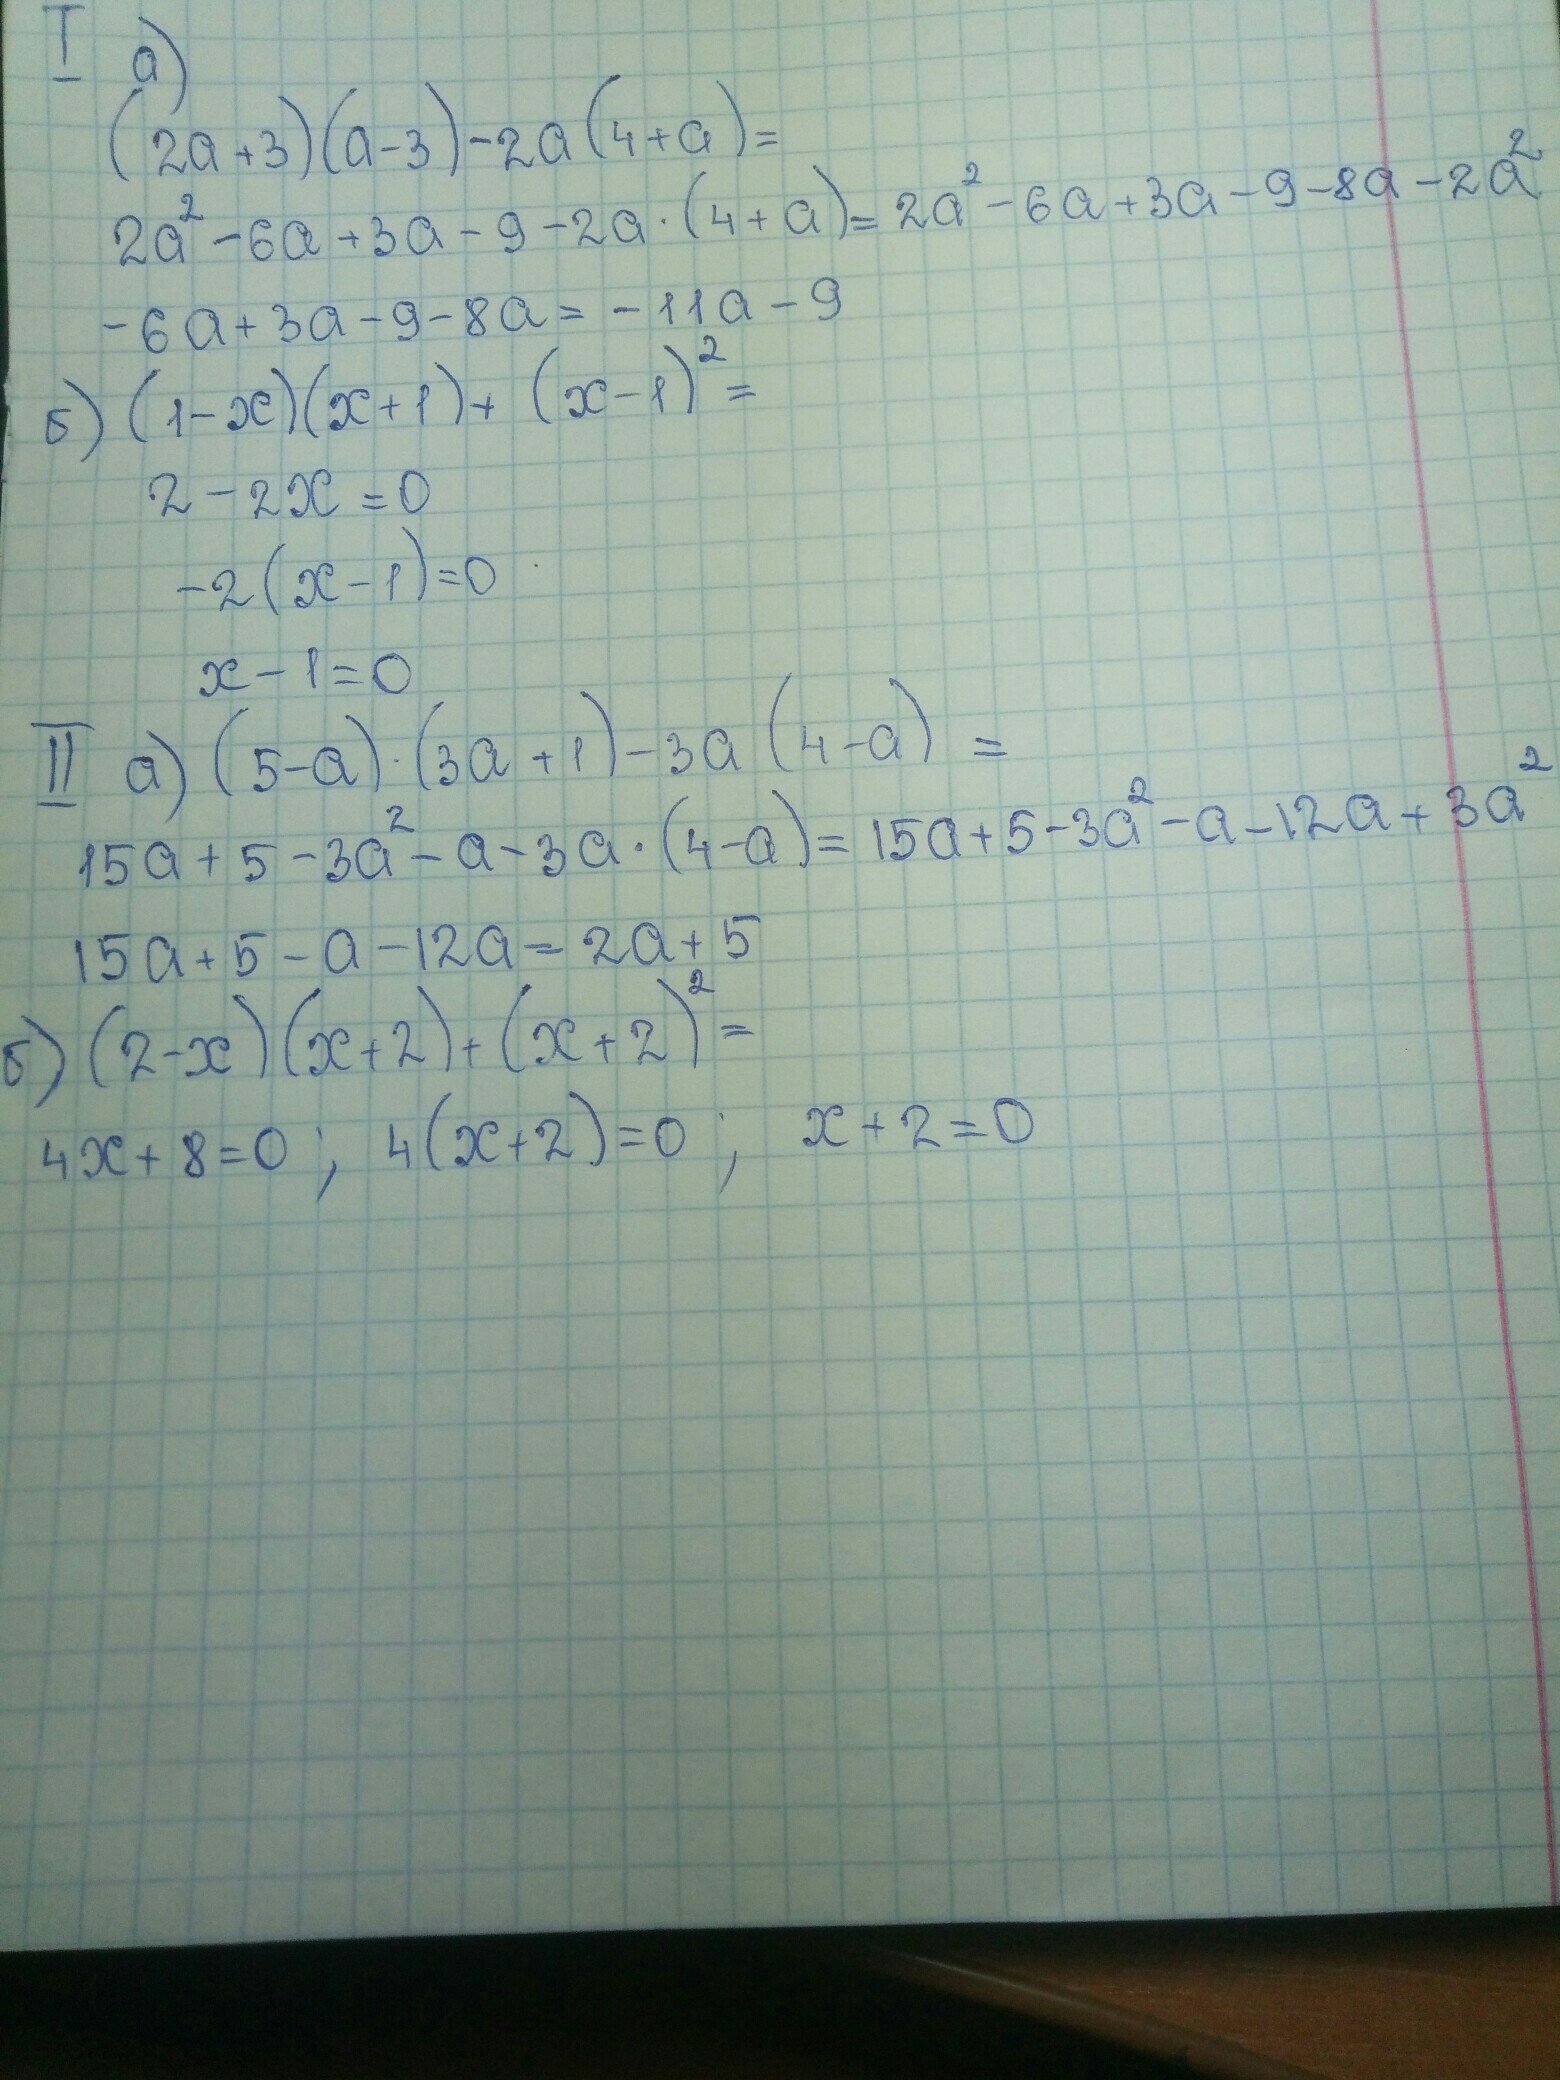 I а)
(2a+3)(a-3)-2a(4+a)=
2a²-6a+3a-9-2a·(4+a)=2a²-6a+3a-9-8a-2a²
-6a+3a-9-8a=-11a-9
б) (1-x)(x+1)+(x-1)²=
2-2x=0
-2(x-1)=0
x-1=0
II а) (5-a)·(3a+1)-3a(4-a)=
15a+5-3a²-a-3a·(4-a)=15a+5-3a²-a-12a+3a²
15a+5-a-12a=2a+5
б) (2-x)(x+2)+(x+2)²=
4x+8=0; 4(x+2)=0; x+2=0